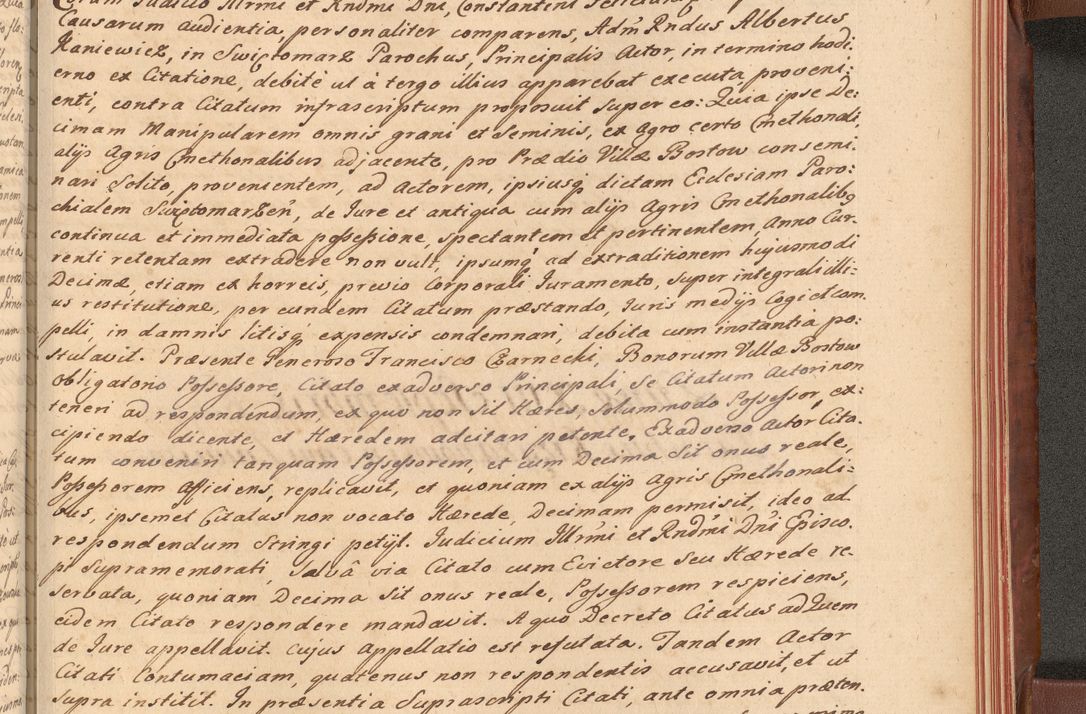 Coram Judicio Illrmi et Rndmi Dni, Constantini Feliciani
Causarum audientia, personaliter comparens, Adm Rndus Albertus
Kaniewicz, in Swiętomarz Parochus, Principalis Actor, in termino hodi:
erno ex Citatione, debite ut à tergo illius apparebat executa proveni:
enti, contra Citatum infrascriptum proposuit super eo: Quia ipse De:
cimam Manipularem omnis grani et Seminis, ex Agro certo Cmethonali,
alijs Agris Cmethonalibus adjacente, pro Prædio Villæ Bostow consemi:
nari Solito, provenientem, ad Actorem, ipsiusq dictam Ecclesiam Paro:
chialem Swiętomarzen, de Jure et antiqua cum alijs Agris Cmethonalibq
continua et immediata possessione, spectantem et pertinentem, Anno Cur:
renti retentam extradere non vult, ipsumq ad extraditionem hujusmodi
Decimæ, etiam ex horreis, prævio Corporali Juramento, super integrali illi:
us restitutione, per eundem Citatum præstando, Juris medijs Cogi et com:
pelli, in damnis litisq expensis condemnari, debita cum instantia po:
stulavit. Præsente Generoso Francisco Czarnecki, Bonorum Villæ Bostow
obligatorio Possessore, Citato ex adverso Principali, se Citatum Actori non
teneri ad respondendum, ex quo non Sit Hæres, Solummodo Possessor, ex:
cipiendo dicente, et Hæredem adcitari petente. Ex adverso Actor Cita:
tum conveniri tanquam Possessorem, et cum Decima Sit onus reale,
Possessorem afficiens, replicavit, et quoniam ex alijs Agris Cmethonali:
bus, ipsemet Citatus non vocato Hærede, Decimam permisit, ideo ad
respondendum Stringi petijt. Judicium Illrmi et Rndmi Dni Episco:
pi Supramemorati, Salvâ via Citato cum Evictore Seu Hærede re:
servata, quoniam Decima Sit onus reale, Possessorem respiciens,
eidem Citato respondere mandavit. A quo Decreto Citatus ad Quem
de Jure appellavit. cujus appellatio est refutata. Tandem Actor
Citati Contumaciam, quatenus non respondentis accusavit, et ut
supra institit. In præsentia Suprascripti Citati, ante omnia præten: